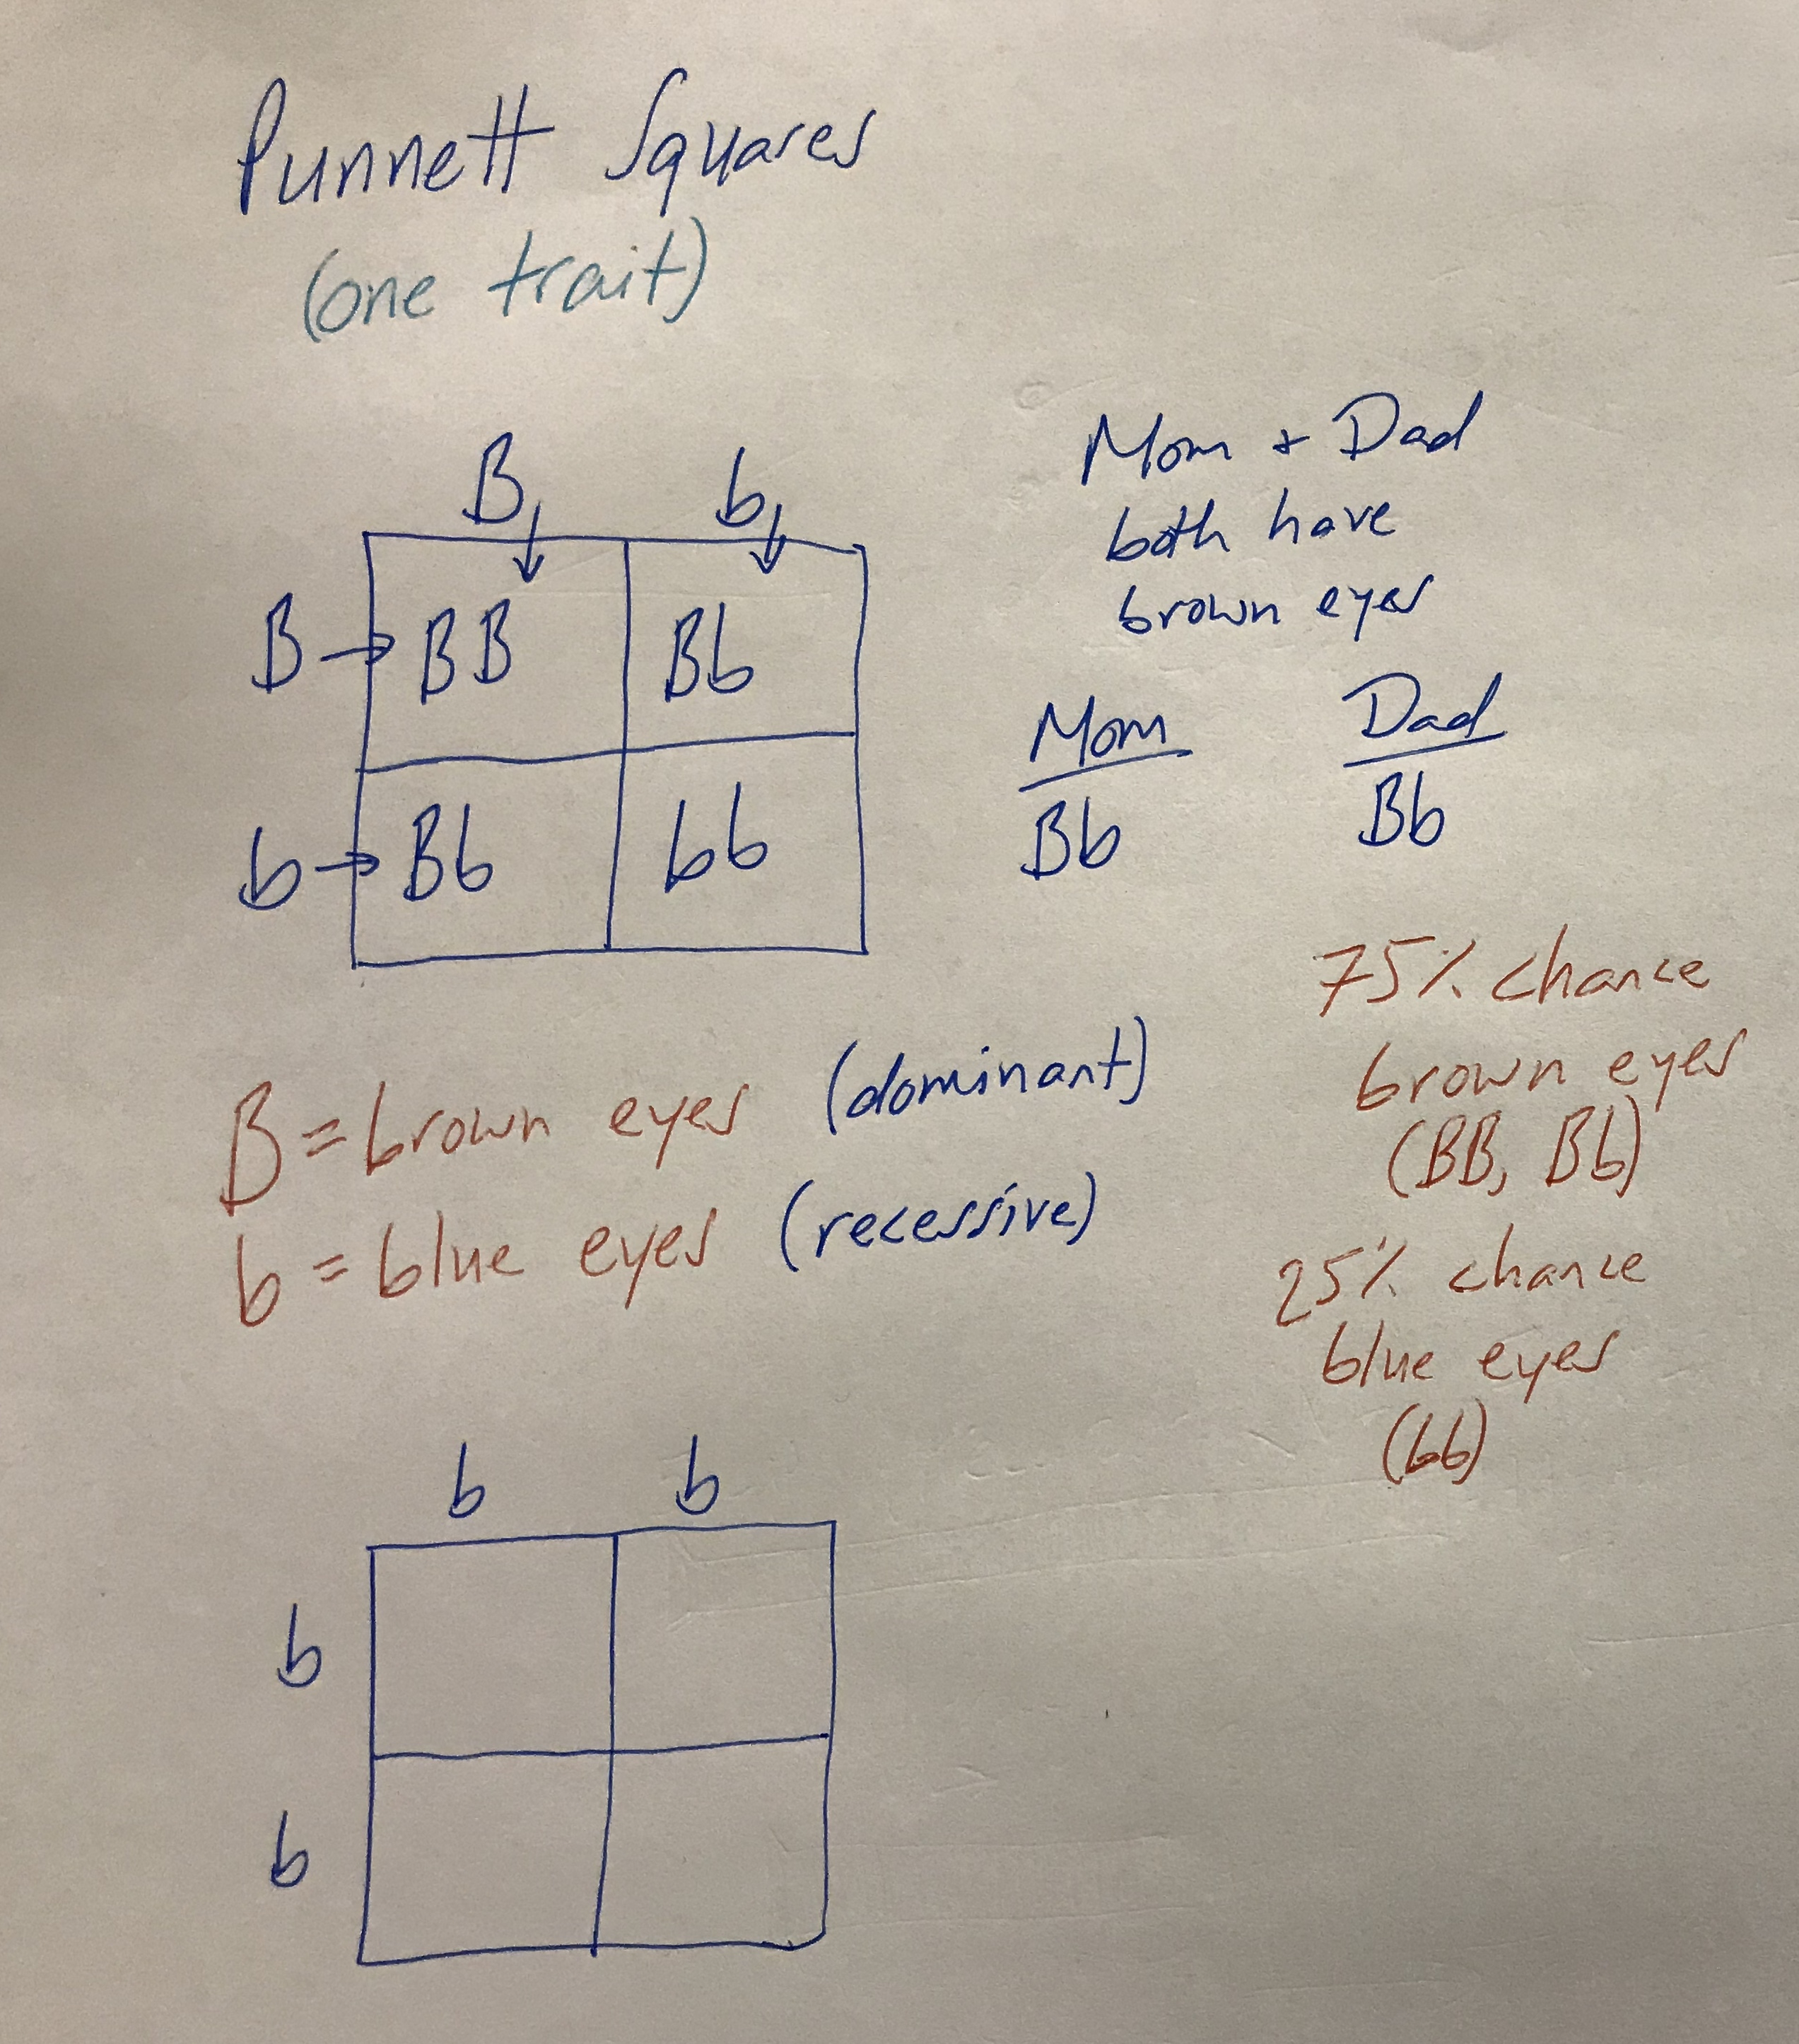 Punnett Squares
(one trait)
B b
B BB Bb
b Bb bb
Mom + Dad
both have
brown eyes
Mom Dad
Bb Bb
75% chance
brown eyes
(BB, Bb)
25% chance
blue eyes
(bb)
B = brown eyes (dominant)
b = blue eyes (recessive)
b b
b
b